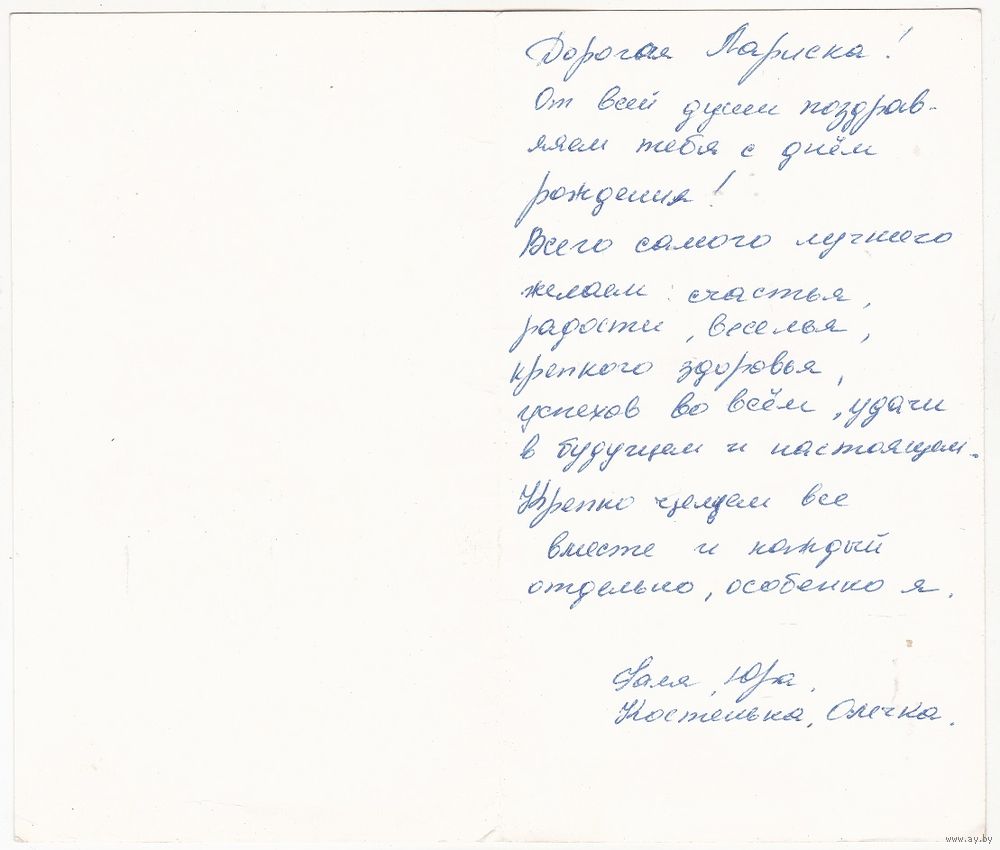 Дорогая Лариска!
От всей души поздрав-
ляем тебя с днём
рождения!
Всего самого лучшего
желаем: счастья,
радости, веселья,
крепкого здоровья,
успехов во всём, удачи
в будущем и настоящем.
Крепко целуем все
вместе и каждый
отдельно, особенно я.
Галя, Юра,
Костенька, Олечка.
www.ay.by